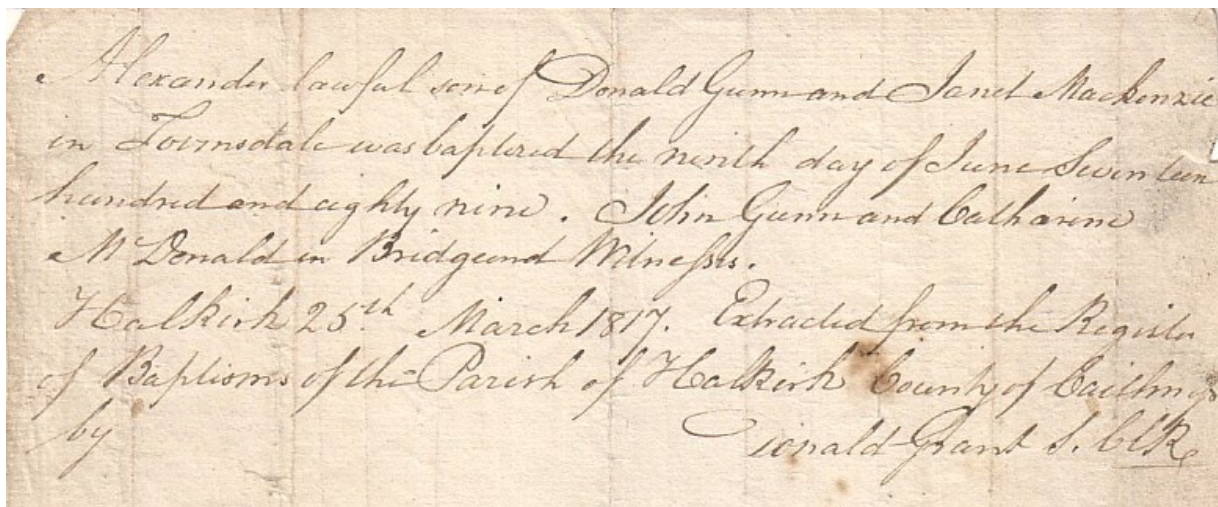 Alexander lawful son of Donald Gunn and Janet Mackenzie
in Toremsdale was baptized the ninth day of June Seventeen
hundred and eighty nine. John Gunn and Catharine
McDonald in Bridgeend Witnesses.
Halkirk 25th March 1817. Extracted from the Register
of Baptisms of the Parish of Halkirk County of Caithness
by Donald Grant S. Clk